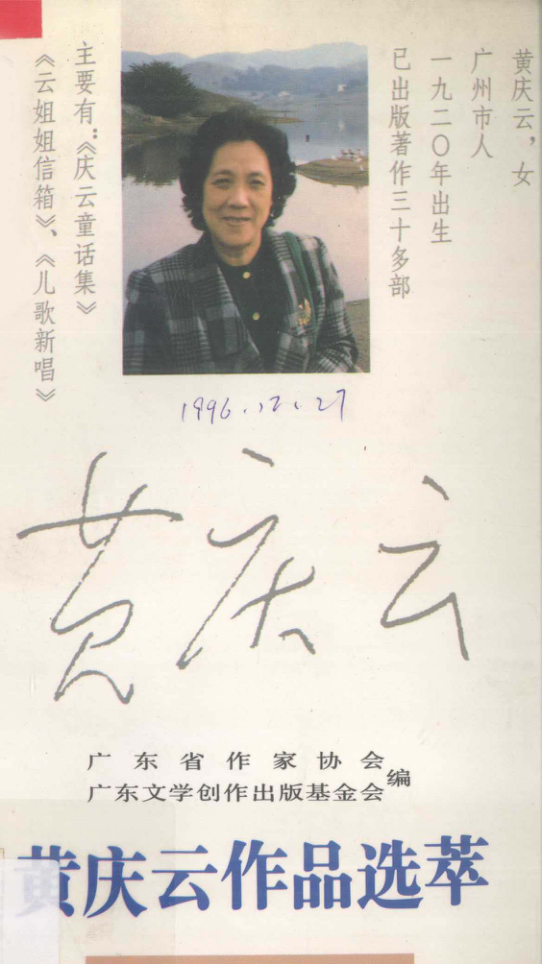 黄庆云，女
广州市人
一九二〇年出生
已出版著作三十多部
主要有：《庆云童话集》
《云姐姐信箱》、《儿歌新唱》
1996.12.27
黄庆云
广东省作家协会
广东文学创作出版基金会编
黄庆云作品选萃